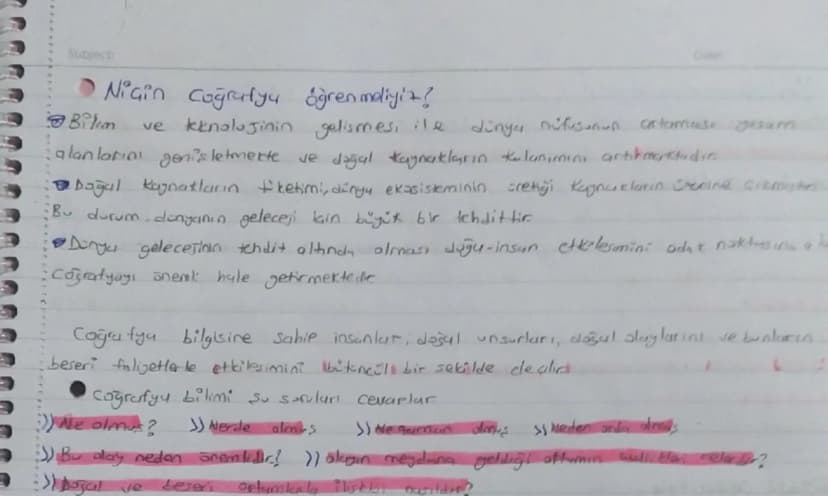 Subject:
Niçin Coğrafya öğrenmeliyiz?
Bilim ve teknolojinin gelişmesi ile dünya nüfusunun artması yaşam
alanlarını genişletmekte ve doğal kaynakların kulanımını artırmaktadır
Doğal kaynakların tüketimi, dünya ekosisteminin ürettiği kaynakların üzerine
Bu durum dünyanın geleceği için büyük bir tehdittir
Dünya geleceğinin tehdit altında olması doğa-insan etkileşimini odak noktasına
Coğrafyayı önemli hale getirmektedir
Coğrafya bilgisine sahip insanlar, doğal unsurları, doğal olaylarını ve bunların
beşeri faliyetlerle etkileşimini bütüncül bir şekilde
Coğrafya bilimi şu soruları cevaplar
>> Ne olmuş? >> Nerde olmuş >> Ne zaman olmuş >> Neden orda olmuş
>> Bu olay neden önemlidir? >> olayın meydana geldiği ortamın nelerdir?
>> Doğal ve beşeri ortamlarla ilişkisi nasıldır?